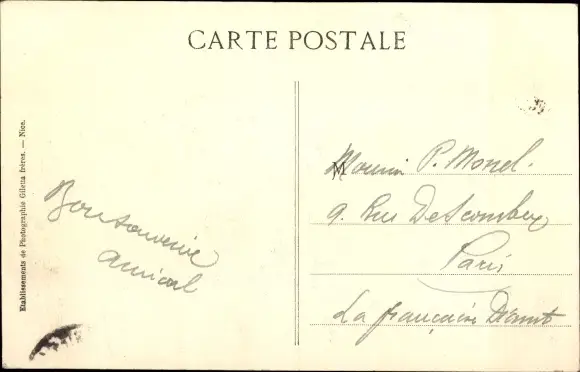 CARTE POSTALE
Etablissements de Photographie Giletta frères. — Nice.
Bon souvenir
amical
P. Morel.
9. Rue Descombes
Paris
La française